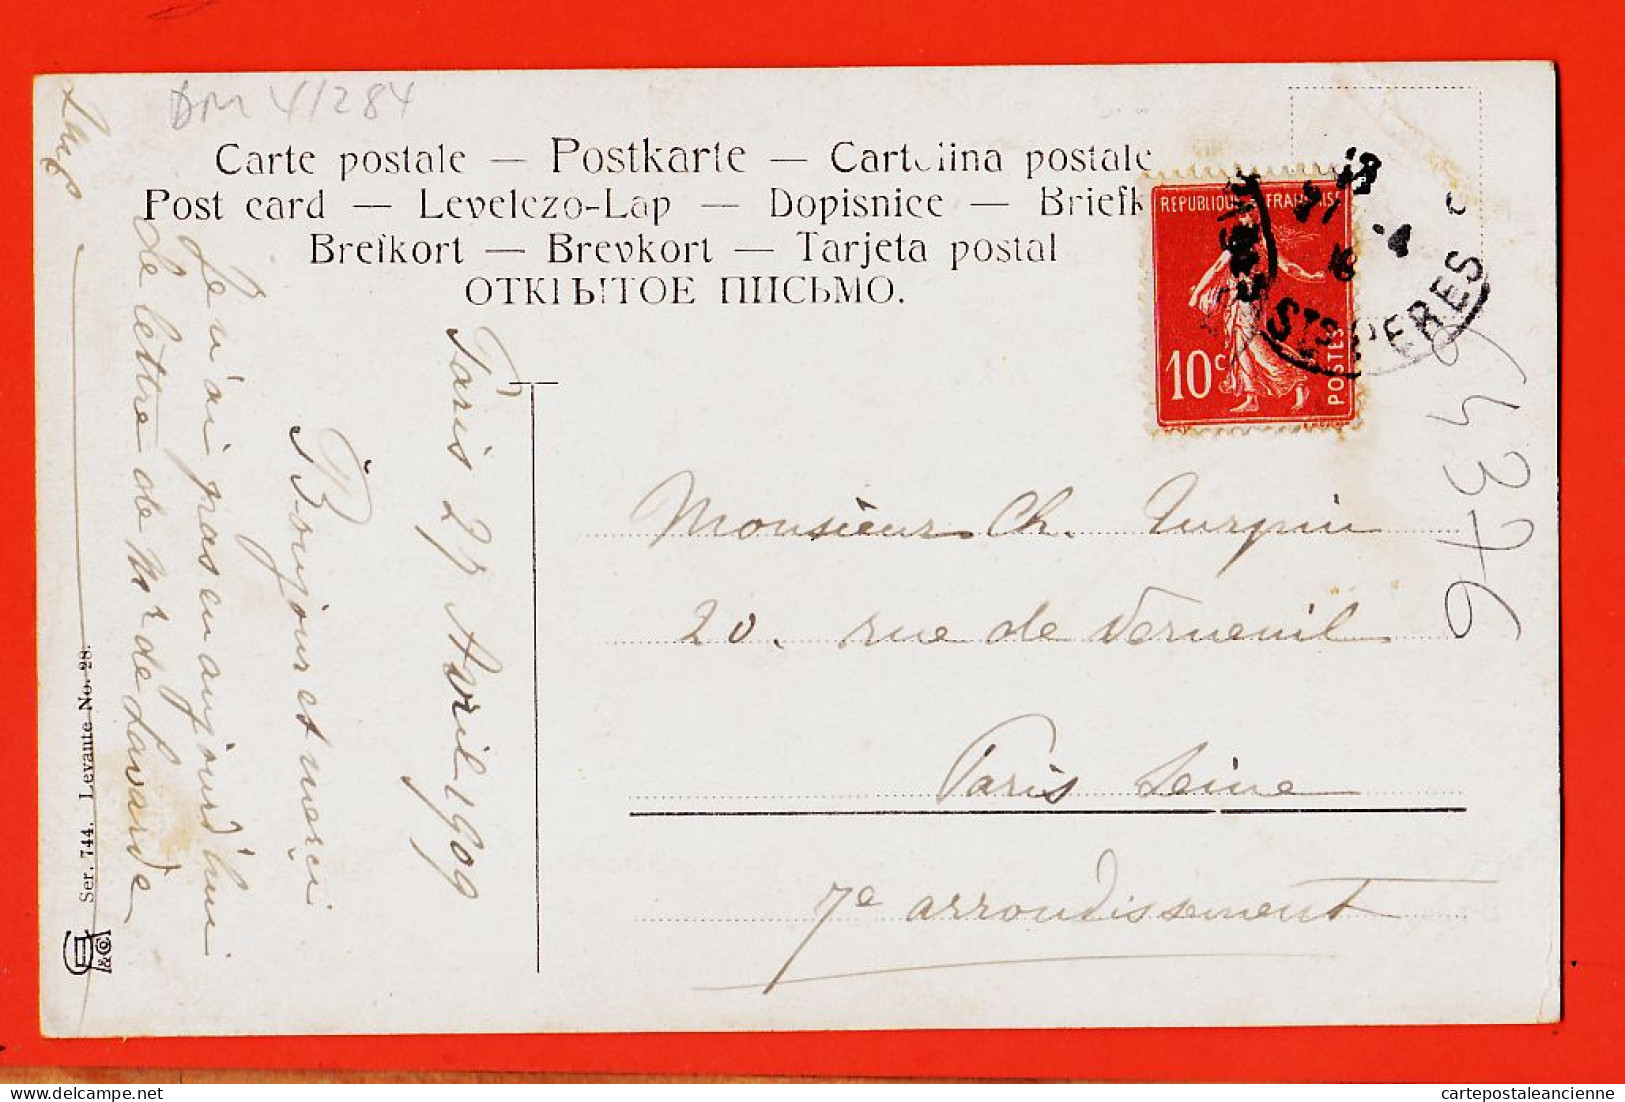 DM 41/284
Carte postale — Postkarte — Cartolina postale
Post card — Levelezo-Lap — Dopisnice — Briefk
Brefkort — Brevkort — Tarjeta postal
ОТКРЫТОЕ ПИСЬМО.
REPUBLIQUE FRANÇAISE
10c
POSTES
STS PERES
64376
Monsieur Ch. Turpin
20. rue de Verneuil
Paris Seine
7e arrondissement
Paris 27 Avril 1909
Bonjour et merci
Je n'ai pas eu aujourd'hui
de lettre de Mr de Lavarde
Ser. 744. Levante No. 28.
&Co
cartepostaleancienne